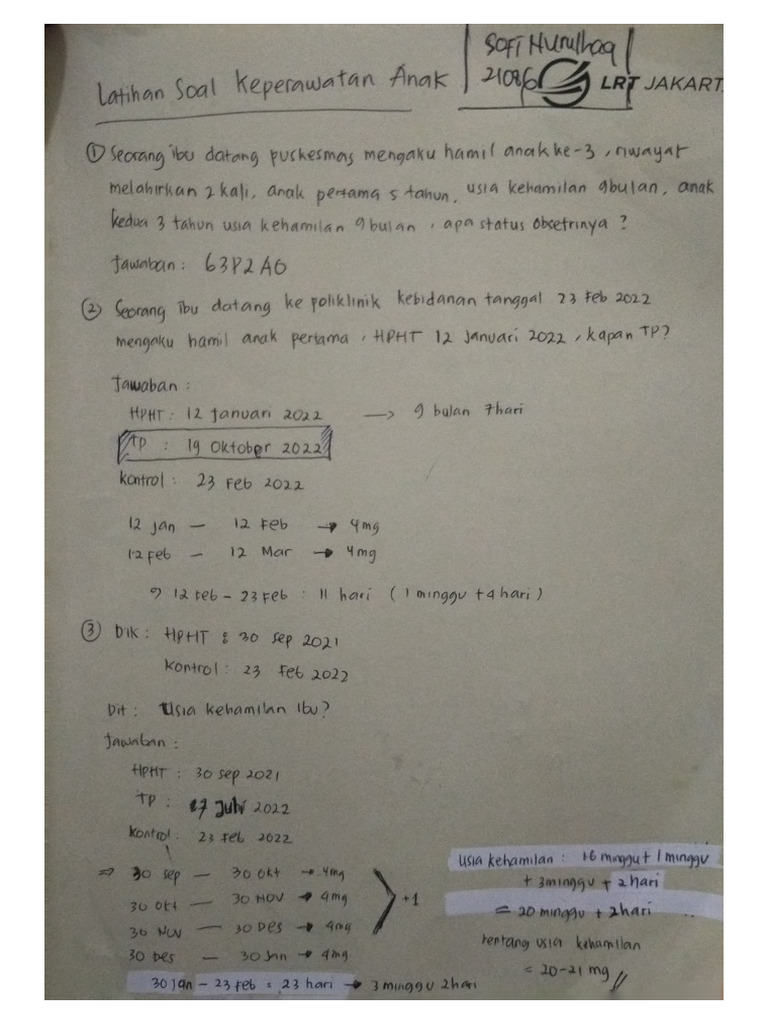 SOFI Nurulhaq
21086
LRT JAKART
Latihan Soal Keperawatan Anak
① Seorang ibu datang puskesmas mengaku hamil anak ke-3, riwayat
melahirkan 2 kali, anak pertama 5 tahun, usia kehamilan 9bulan, anak
kedua 3 tahun usia kehamilan 9 bulan, apa status obsetrinya?
Jawaban: G3P2A0
② Seorang ibu datang ke poliklinik kebidanan tanggal 23 Feb 2022
mengaku hamil anak pertama, HPHT 12 Januari 2022, kapan TP?
Jawaban:
HPHT: 12 Januari 2022 → 9 bulan 7hari
TP : 19 Oktober 2022
Kontrol: 23 Feb 2022
12 Jan — 12 Feb → 4mg
12 Feb — 12 Mar → 4mg
12 Feb - 23 Feb : 11 hari (1 minggu + 4 hari)
③ Dik: HPHT : 30 Sep 2021
Kontrol: 23 Feb 2022
Dit: Usia kehamilan Ibu?
Jawaban:
HPHT: 30 Sep 2021
TP: 27 Juli 2022
Kontrol: 23 Feb 2022
⇒ 30 Sep — 30 Okt → 4mg
30 Okt — 30 Nov → 4mg
30 Nov — 30 Des → 4mg
30 Des — 30 Jan → 4mg
+1
30 Jan - 23 Feb = 23 hari → 3 minggu 2hari
Usia kehamilan: 16 minggu + 1 minggu
+ 3minggu + 2hari
= 20 minggu + 2hari
rentang usia kehamilan
= 20-21 mg //